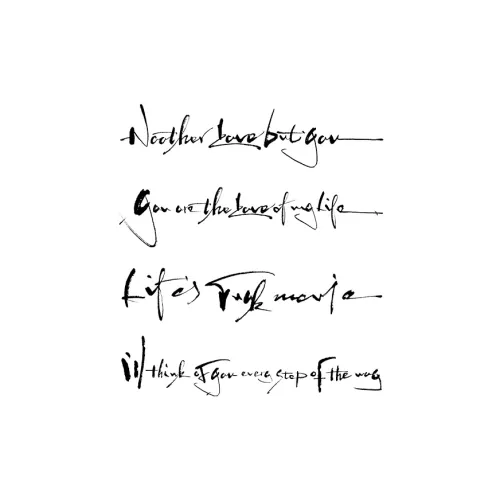 No other Love but you
you are the Love of my Life
Life's Fuck movie
i'll think of you every step of the way